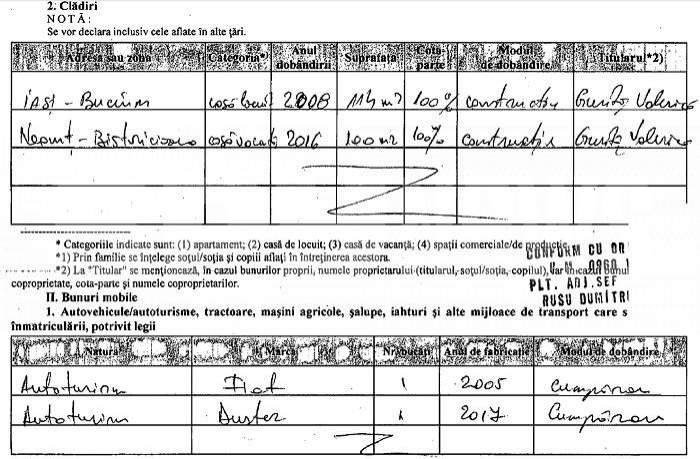 2. Clădiri
NOTĂ:
Se vor declara inclusiv cele aflate în alte țări.
Adresa sau zona Categoria*) Anul dobândirii Suprafața Cota-parte Modul de dobândire Titularul*2)
IAȘI - Bucium casă locuit 2008 114 m2 100% constructie Valerica
Neamț - casă vacanță 2016 100 m2 100% constructie Valerica
* Categoriile indicate sunt: (1) apartament; (2) casă de locuit; (3) casă de vacanță; (4) spații comerciale/de producție.
CONFORM CU OR
*1) Prin familie se înțelege soțul/soția și copiii aflați în întreținerea acestora.
*2) La "Titular" se menționează, în cazul bunurilor proprii, numele proprietarului (titularul, soțul/soția, copilul), iar în cazul bunurilor
coproprietate, cota-parte și numele coproprietarilor.
PLT. ADJ. SEF
RUSU DUMITRI
II. Bunuri mobile
1. Autovehicule/autoturisme, tractoare, mașini agricole, șalupe, iahturi și alte mijloace de transport care s
înmatriculării, potrivit legii
Natura Marca Nr. bucăți Anul de fabricație Modul de dobândire
Autoturism Fiat 1 2005 Cumpărare
Autoturism Duster 1 2017 Cumpărare